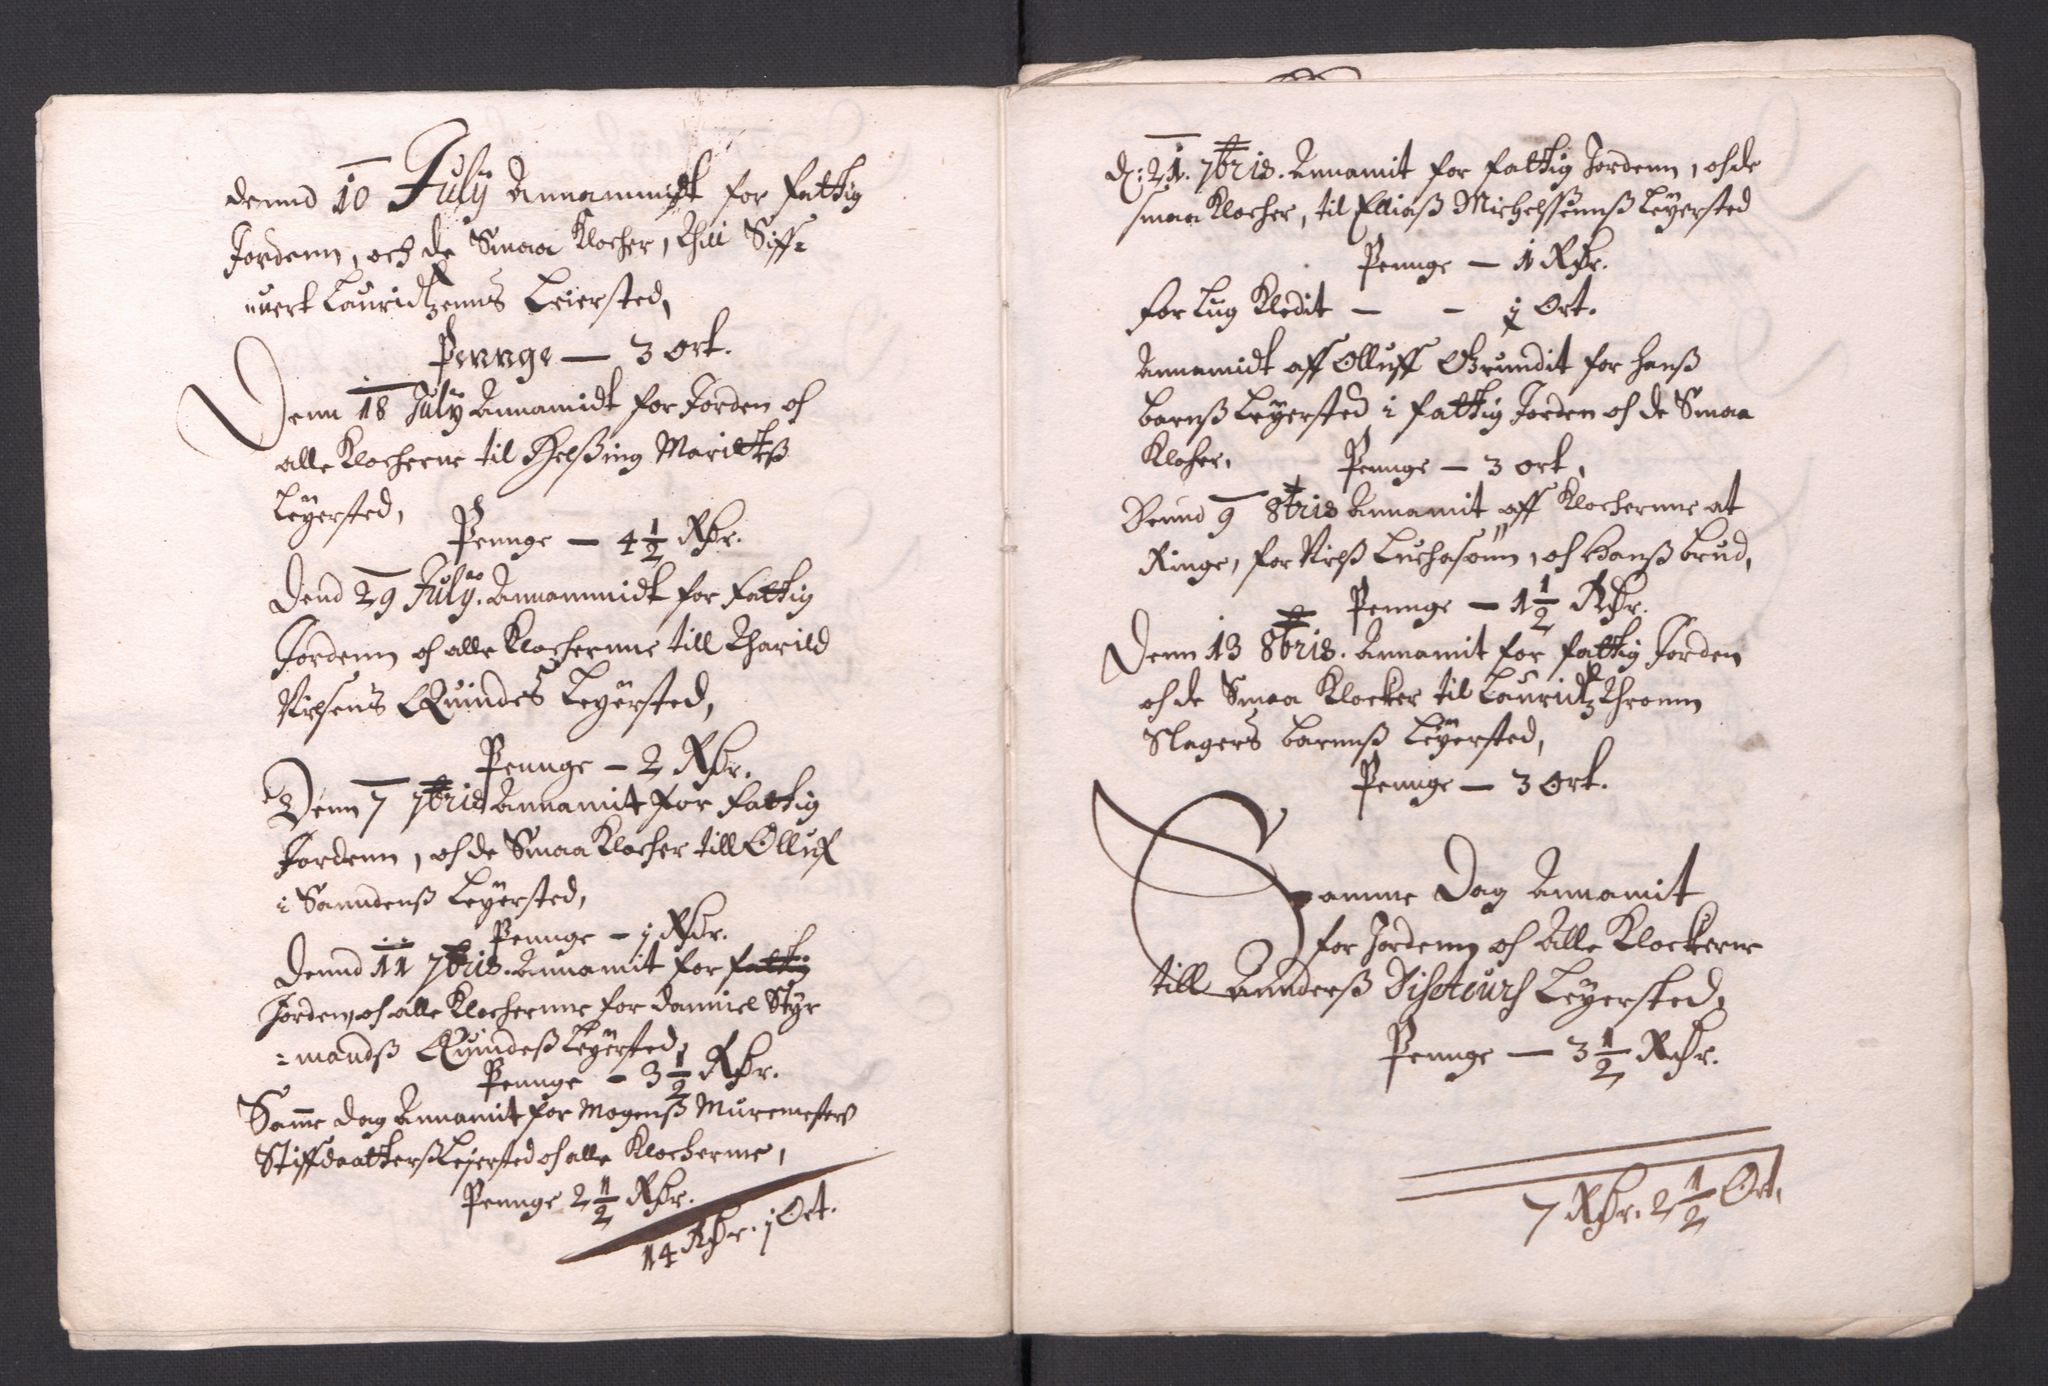 dennd 10 July Annammidt for fattig
Jordenn, och de Smaa Klocher, thill Siff=
uert Lauridtzenns Leiersted,
Pennge — 3 Ort.
Denn 18 July Annamidt for Jorden oh
alle Klocherne til Helßing Maritteß
Leÿersted,
Pennge — 4 1/2 Rdr.
Dend 29 July. Annammidt for Fattig
Jordenn oh alle Klochernne till Tharild
Nielsens Quindes Leÿersted,
Pennge — 2 Rdr.
Denn 7 7bris Annamit for fattig
Jordenn, oh de Smaa Klocher till Olluf
i Sanndenß Leÿersted,
Pennge — j Rdr.
Dennd 11 7bris. Annamit for fattig
Jorden, oh alle Klochernne for Danniel Styr
=mandß Quindeß Leÿersted,
Pennge — 3 1/2 Rdr.
Samme dag Annamit for Mogenß Muremester
Stiffdaatterß Lejersted oh alle Klocherne,
Pennge 2 1/2 Rdr.
14 Rdr. j Ort.
D: 21. 7bris. Annamit for fattig Jordenn, oh de
smaa Klocher, til Elliaß Michelssennß Leÿersted
Pennge — 1 Rdr.
for Lug Kledit — - j Ort.
Annamidt aff Olluff Grundit for Hanß
barnß Leÿersted i fattig Jorden oh de Smaa
Kloher, Pennge — 3 ort,
Dennd 9 8bris Annamit aff Klochernne at
Ringe, for Nielß Luchasønn, oh Hanß brud,
Pennge — 1 1/2 Rdr.
Denn 13 8bris. Annamit for fattig Jorden
oh de Smaa Klocker til Lauridtz Thromm
Slagers barnnß Leÿersted,
Pennge — 3 Ort.
Samme Dag Annamit
for Jordenn oh Alle Klockerne
till Annderß Leÿersted,
Pennge — 3 1/2 Rdr.
7 Rdr. 2 1/2 Ort,